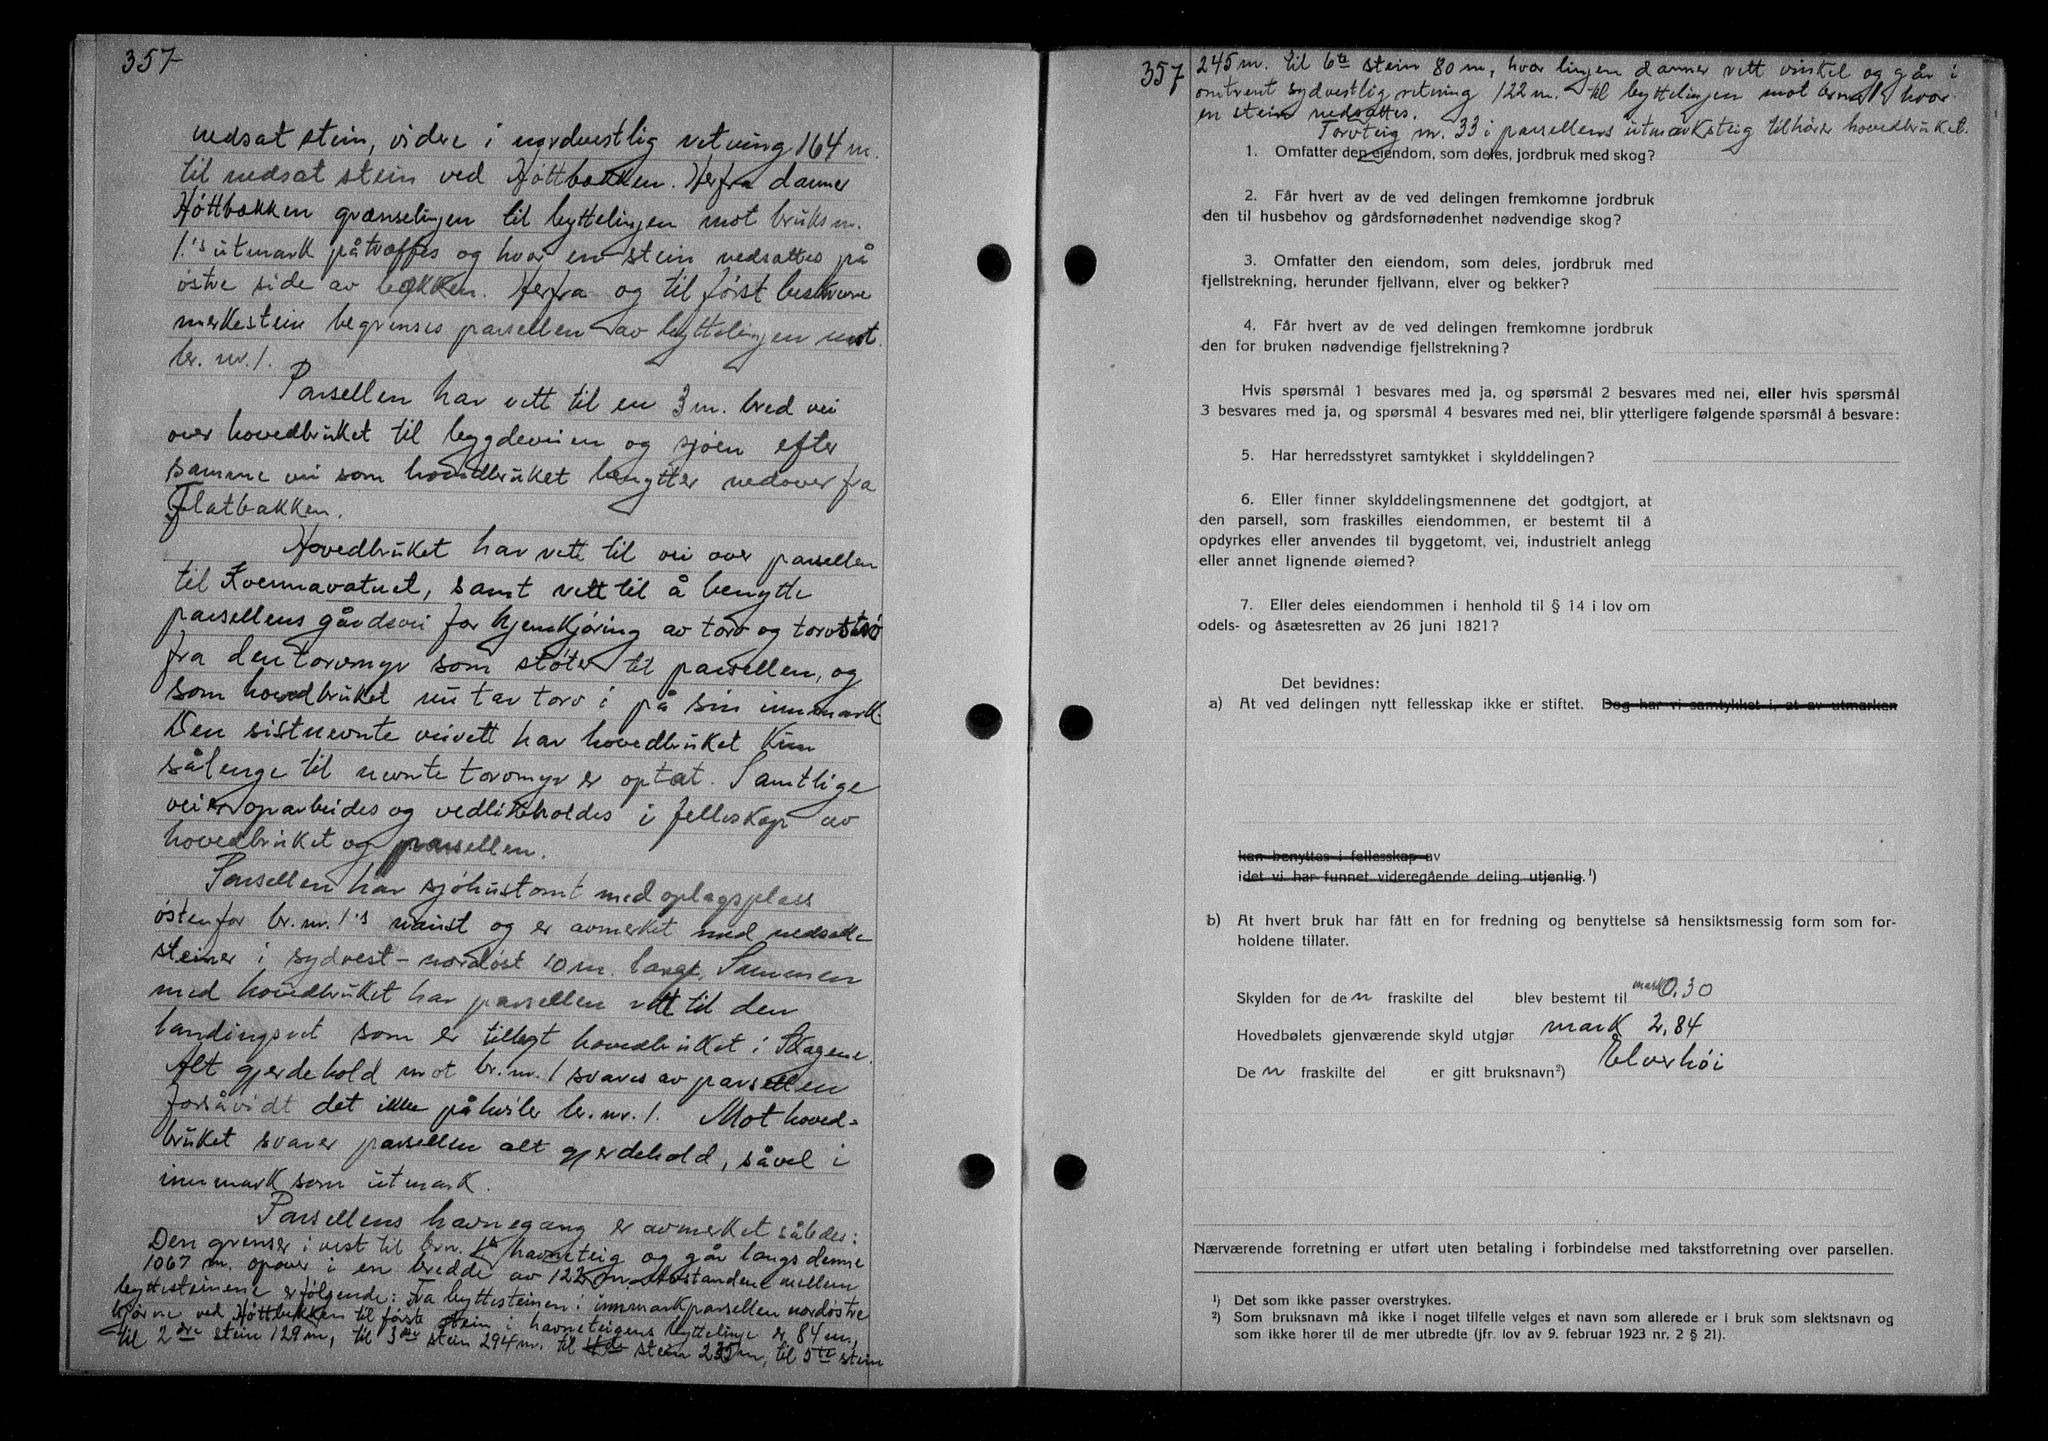 357
nedsat stein, videre i nordvestlig retning 164 m.
til nedsat stein ved Høttbækken. Herfra danner
Høttbækken grænselinjen til byttelinjen mot bruksnr.
1.'s utmark påtræffes og hvor en stein nedsattes på
østre side av bækken. Herfra og til først beskrevne
merkestein begrenses parsellen av byttelinjen mot
br. nr. 1.
Parsellen har rett til en 3 m. bred vei
over hovedbruket til bygdeveien og sjøen efter
samme vei som hovedbruket benytter nedover fra
Flatbakken.
Hovedbruket har rett til vei over parsellen
til Kvernavatnet, samt rett til å benytte
parsellens gårdsvei for hjemkjøring av torv og torvstrø
fra den torvmyr som støter til parsellen, og
som hovedbruket nu tar torv i på sin innmark.
Den sistnevnte veirett har hovedbruket kun
sålenge til nevnte torvmyr er optat. Samtlige
veier oparbeides og vedlikeholdes i felleskap av
hovedbruket og parsellen.
Parsellen har sjøhustomt med oplagsplass
østenfor br. nr. 1's naust og er avmerket med nedsatte
steiner i sydvest - nordøst 10 m. langt. Sammen
med hovedbruket har parsellen rett til den
landingsret som er tillagt hovedbruket i Skagene.
Alt gjerdehold mot br. nr. 1 svares av parsellen
forsåvidt det ikke påhviler br. nr. 1. Mot hoved-
bruket svarer parsellen alt gjerdehold, såvel i
innmark som utmark.
Parsellens havnegang er avmerket således:
Den grenser i vest til brnr. 1s havneteig og går langs denne
1067 m. opover i en bredde av 122 m. Avstandene mellem
byttesteinene er følgende: Fra byttesteinen i innmarkparsellen nordøstre
hjørne ved Høttbekken til første stein i havneteigens byttelinje er 84 m,
til 2dre stein 129 m, til 3die stein 294 m. til 4de stein 235 m, til 5te stein
357
245 m. til 6te stein 80 m, hvor linjen danner rett vinkel og går i
omtrent sydvestlig retning 122 m. til byttelinjen mot brnr 1, hvor
en stein nedsattes.
Torvteig nr. 33 i parsellens utmarksteig tilhører hovedbruket.
1. Omfatter den eiendom, som deles, jordbruk med skog?
2. Får hvert av de ved delingen fremkomne jordbruk
den til husbehov og gårdsfornødenhet nødvendige skog?
3. Omfatter den eiendom, som deles, jordbruk med
fjellstrekning, herunder fjellvann, elver og bekker?
4. Får hvert av de ved delingen fremkomne jordbruk
den for bruken nødvendige fjellstrekning?
Hvis spørsmål 1 besvares med ja, og spørsmål 2 besvares med nei, eller hvis spørsmål
3 besvares med ja, og spørsmål 4 besvares med nei, blir ytterligere følgende spørsmål å besvare:
5. Har herredsstyret samtykket i skylddelingen?
6. Eller finner skylddelingsmennene det godtgjort, at
den parsell, som fraskilles eiendommen, er bestemt til å
opdyrkes eller anvendes til byggetomt, vei, industrielt anlegg
eller annet lignende øiemed?
7. Eller deles eiendommen i henhold til § 14 i lov om
odels- og åsætesretten av 26 juni 1821?
Det bevidnes:
a) At ved delingen nytt fellesskap ikke er stiftet. Dog har vi samtykket i, at av utmarken
kan benyttes i fellesskap av
idet vi har funnet videregående deling utjenlig.¹)
b) At hvert bruk har fått en for fredning og benyttelse så hensiktsmessig form som for-
holdene tillater.
Skylden for den fraskilte del blev bestemt til mark 0.30
Hovedbølets gjenværende skyld utgjør mark 2,84
Den fraskilte del er gitt bruksnavn²) Elverhöi
Nærværende forretning er utført uten betaling i forbindelse med takstforretning over parsellen.
¹) Det som ikke passer overstrykes.
²) Som bruksnavn må ikke i noget tilfelle velges et navn som allerede er i bruk som slektsnavn og
som ikke hører til de mer utbredte (jfr. lov av 9. februar 1923 nr. 2 § 21).